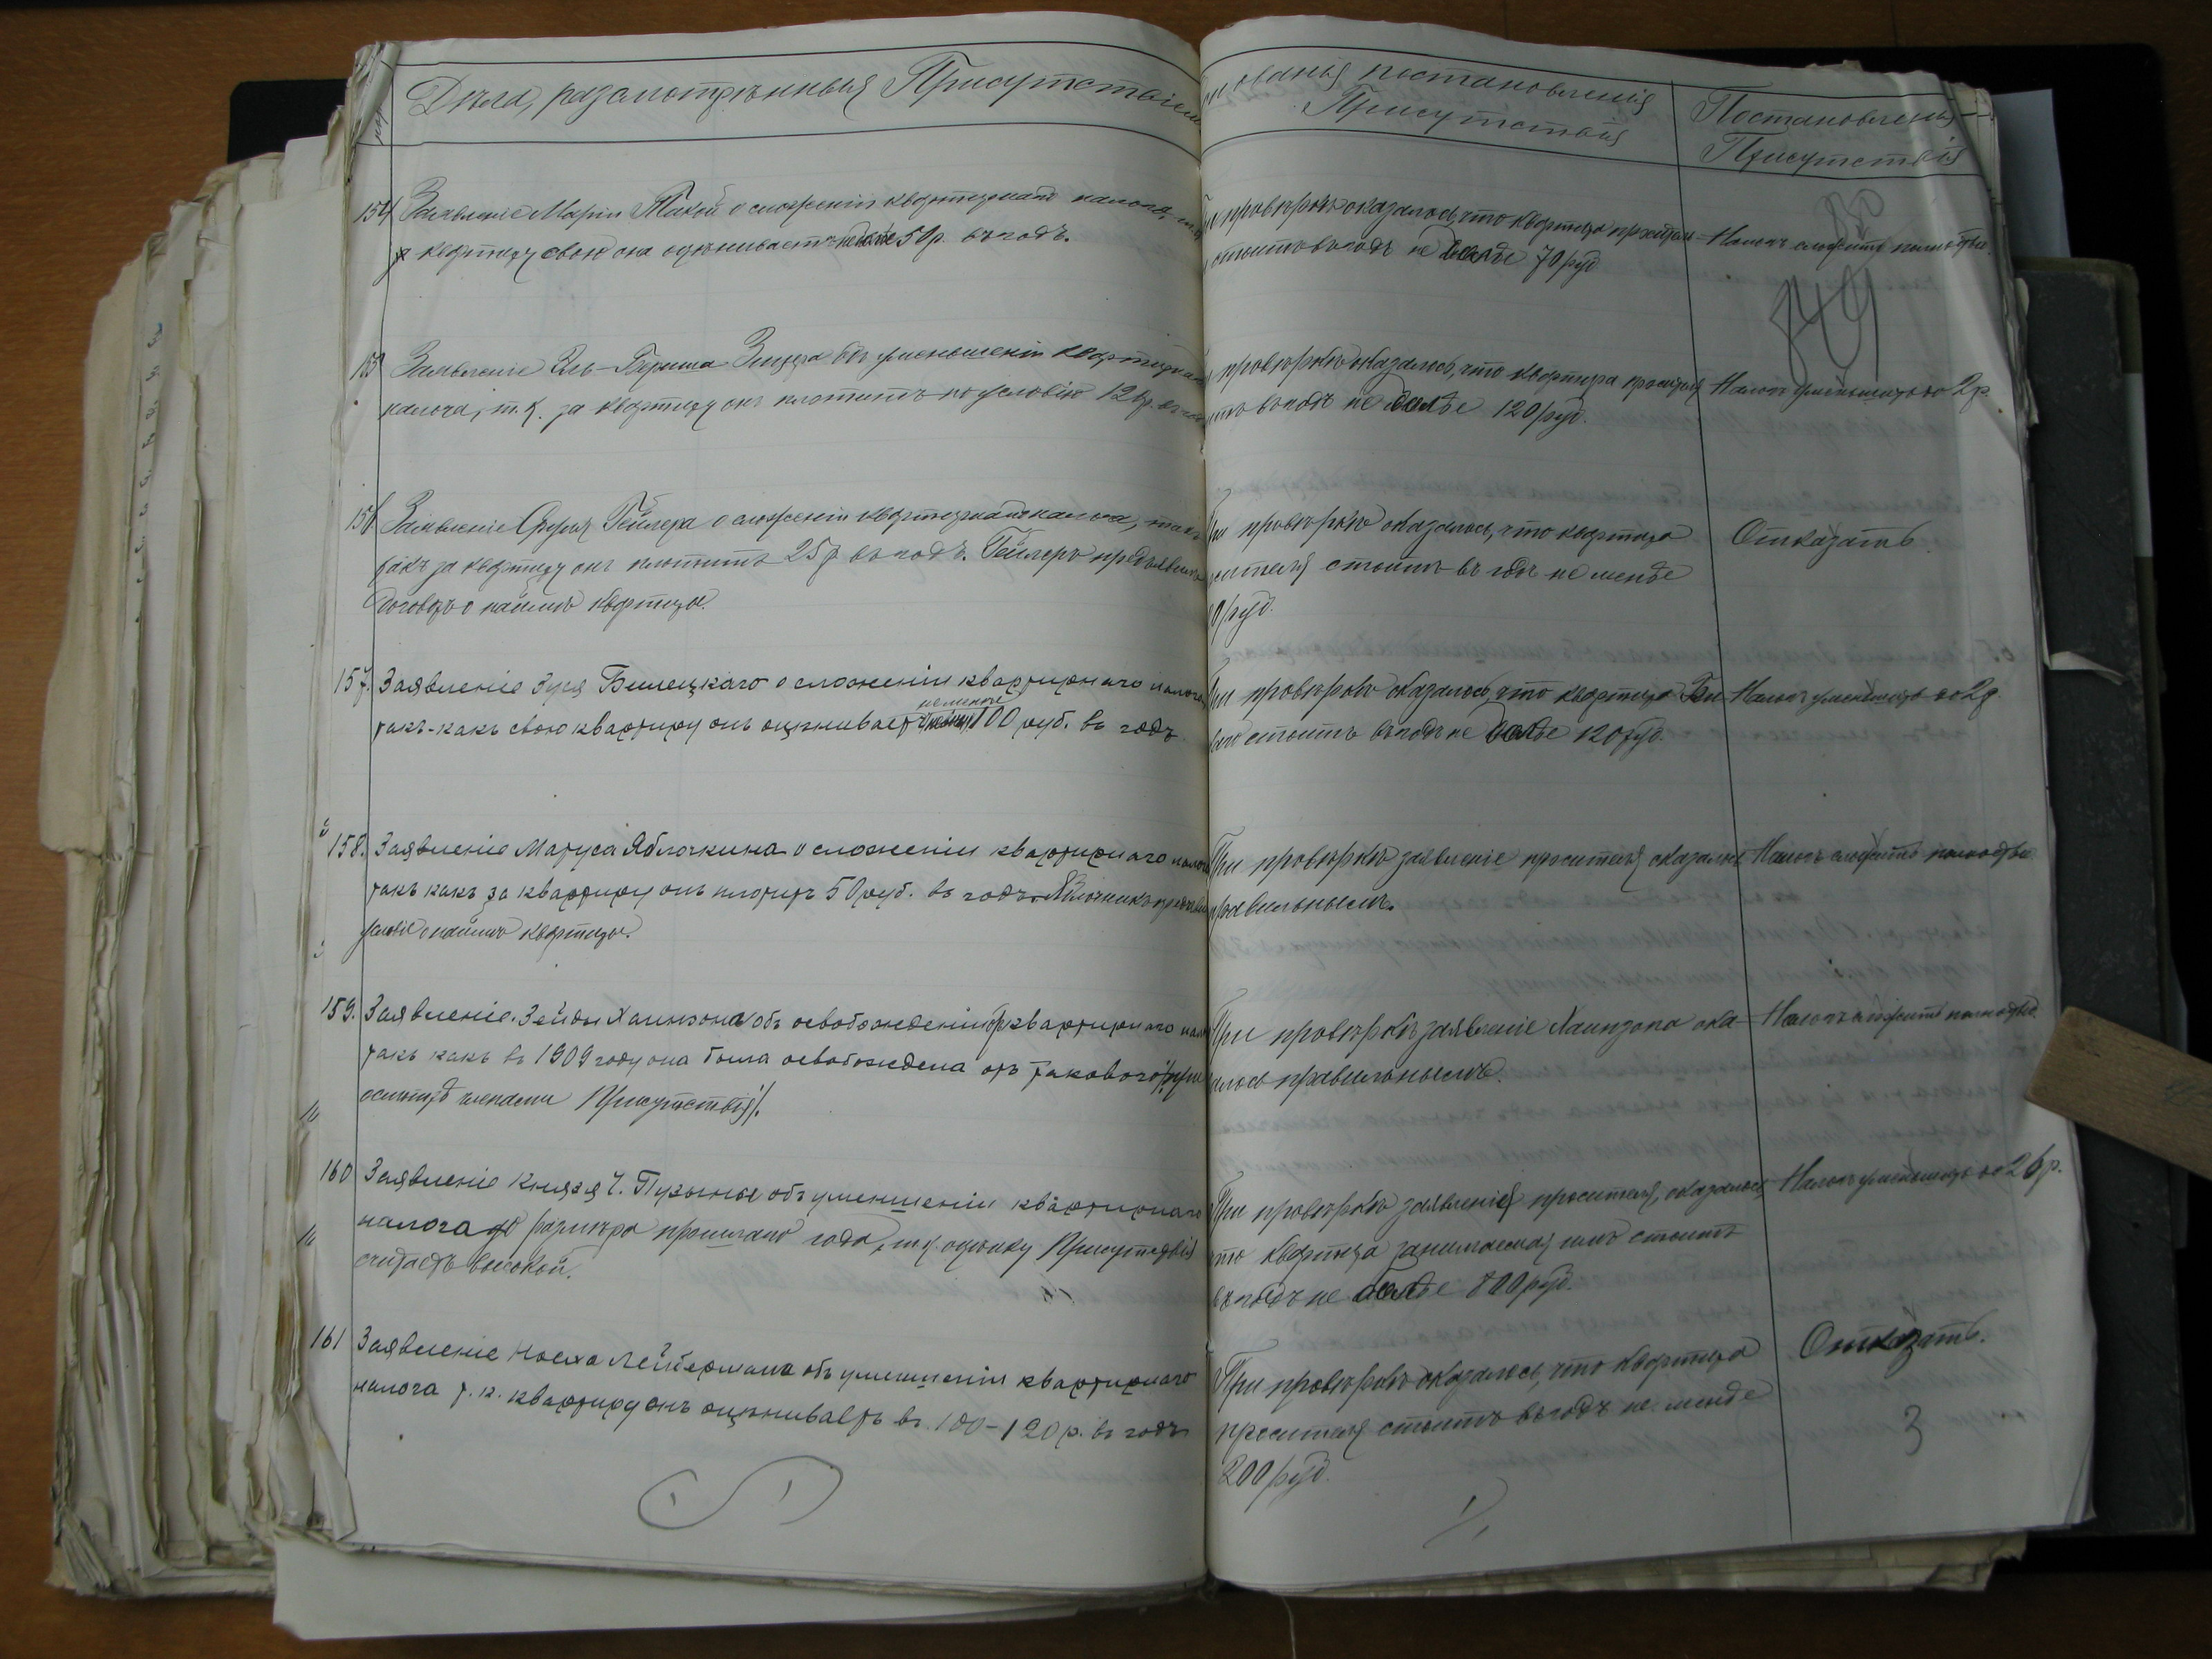 Дѣла, разсмотрѣнныя Присутствіем
154 Заявленіе Маріи о сложеніи квартирнаго налога, т. к.
квартиру свою она оцѣниваетъ 50 р. въ годъ.
155 Заявленіе об уменьшеніи квартирнаго
налога, т. к. за квартиру онъ платитъ по условію 12 р. въ год
156 Заявленіе Гейлера о сложеніи квартирнаго налога, такъ
какъ за квартиру онъ платитъ 25 р въ годъ. Гейлеръ предъявилъ
договоръ о наймѣ квартиры.
157. Заявленіе Зуся Билецкаго о сложеніи квартирнаго налога
такъ-какъ свою квартиру онъ оцѣниваетъ 100 руб. въ годъ
158. Заявленіе Маруса Яблочкина о сложеніи квартирнаго налога
такъ какъ за квартиру онъ платитъ 50 руб. въ годъ.
условіе о наймѣ квартиры.
159. Заявленіе Зейды Хаинзона объ освобожденіи отъ квартирнаго нало
такъ какъ въ 1909 году она была освобождена отъ таковаго /при
осмотрѣ членами Присутствія/.
160 Заявленіе Князя Ч. Пузыны объ уменьшеніи квартирнаго
налога до размѣра прошлаго года, т. к. оцѣнку Присутствія
считаетъ высокой.
161 Заявленіе Ноеха Лейбермана объ уменьшеніи квартирнаго
налога т. к. квартиру онъ оцѣниваетъ въ 100-120 р. въ годъ
нованія постановленія
Присутствія
Постановленія
Присутствія
ри провѣркѣ оказалось, что квартира просител-
стоитъ въ годъ не болѣе 70 руб.
Налогъ сложить полностью.
149
провѣркѣ оказалось, что квартира просителя
итъ въ годъ не болѣе 120 руб.
Налогъ уменьшить до 2 р.
ри провѣркѣ оказалось, что квартира
сителя стоитъ въ годъ не менѣе
0 руб.
Отказать.
ри провѣркѣ оказалось, что квартира Би
стоитъ въ годъ не болѣе 120 руб.
Налогъ уменьшить до 2 р.
При провѣркѣ заявленіе просителя оказалось
правильнымъ.
Налогъ сложить полностью
При провѣркѣ заявленіе Хаинзона ока-
алось правильнымъ.
Налогъ сложить полностью.
При провѣркѣ заявленія просителя, оказалось
что квартира занимаемая имъ стоитъ
въ годъ не болѣе 800 руб.
Налогъ уменьшить до 26 р.
При провѣркѣ оказалось, что квартира
просителя стоитъ въ годъ не менѣе
200 руб.
Отказать.
3